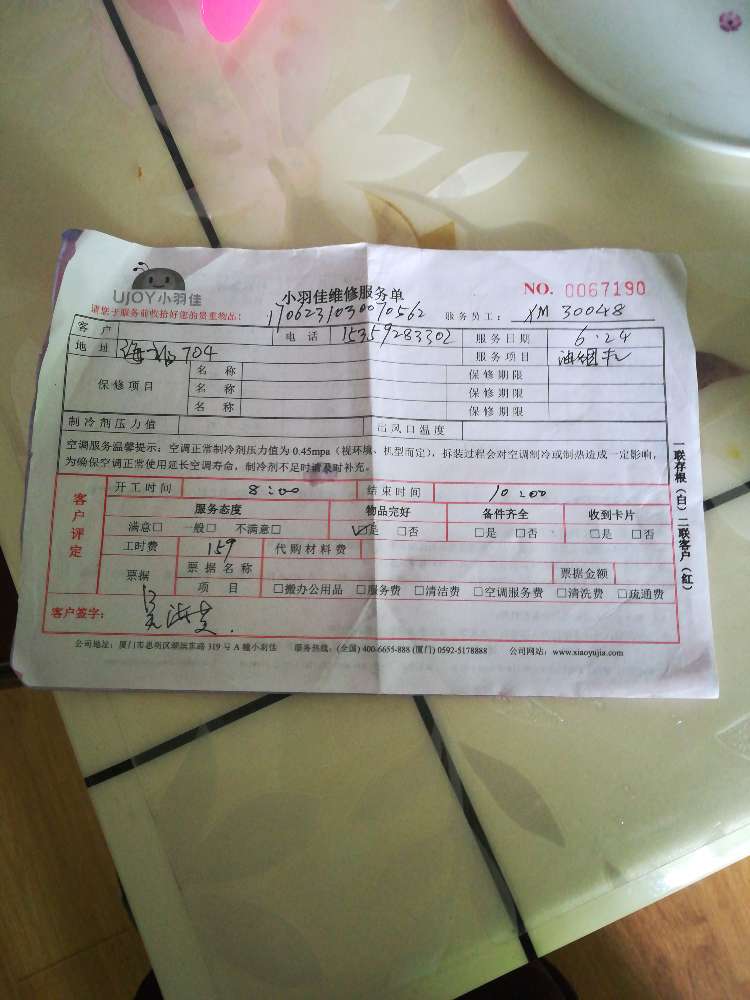 UJOY小羽佳
小羽佳维修服务单
NO. 0067190
请您于服务前收拾好您的贵重物品:
1706231030070562
服务员工: XM 30048
客户 电话 15359283302 服务日期 6.24
地址 704 服务项目 油烟机
保修项目 名称 保修期限
名称 保修期限
名称 保修期限
制冷剂压力值 出风口温度
空调服务温馨提示:空调正常制冷剂压力值为 0.45mpa(视环境、机型而定),拆装过程会对空调制冷或制热造成一定影响,
为确保空调正常使用延长空调寿命,制冷剂不足时请及时补充。
客户评定
开工时间 8:00 结束时间 10:00
服务态度 物品完好 备件齐全 收到卡片
满意□ 一般□ 不满意□ ☑是 □否 □是 □否 □是 □否
工时费 159 代购材料费
票据 票据名称 票据金额
项目 □搬办公用品 □服务费 □清洁费 □空调服务费 □清洗费 □疏通费
客户签字:
公司地址:厦门市思明区湖滨东路 319 号 A 幢小羽佳 服务热线:(全国) 400-6655-888 (厦门) 0592-5178888 公司网站:www.xiaoyujia.com
一联存根(白) 二联客户(红)